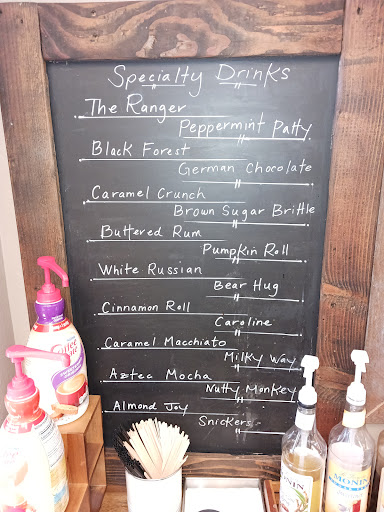 Specialty Drinks
The Ranger
Peppermint Patty
Black Forest
German Chocolate
Caramel Crunch
Brown Sugar Brittle
Buttered Rum
Pumpkin Roll
White Russian
Bear Hug
Cinnamon Roll
Caroline
Caramel Macchiato
Milky Way
Aztec Mocha
Nutty Monkey
Almond Joy
Snickers
MONIN
MONIN